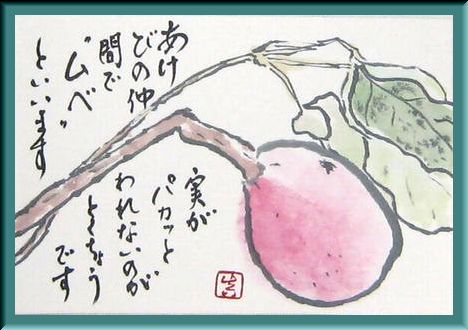 あけ
びの仲
間で
“ムベ”
といいます
実が
パカッと
われないのが
とくちょう
です